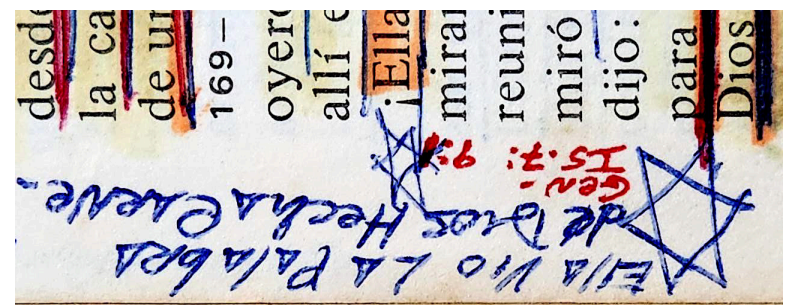 desde
la ca
de un
169–
oyero
allí e
¡Ella
mirar
reuni
miró
dijo:
para
Dios
Ella Vio La Palabra
de Dios Hecha Carne.
Gen-
IS.7: